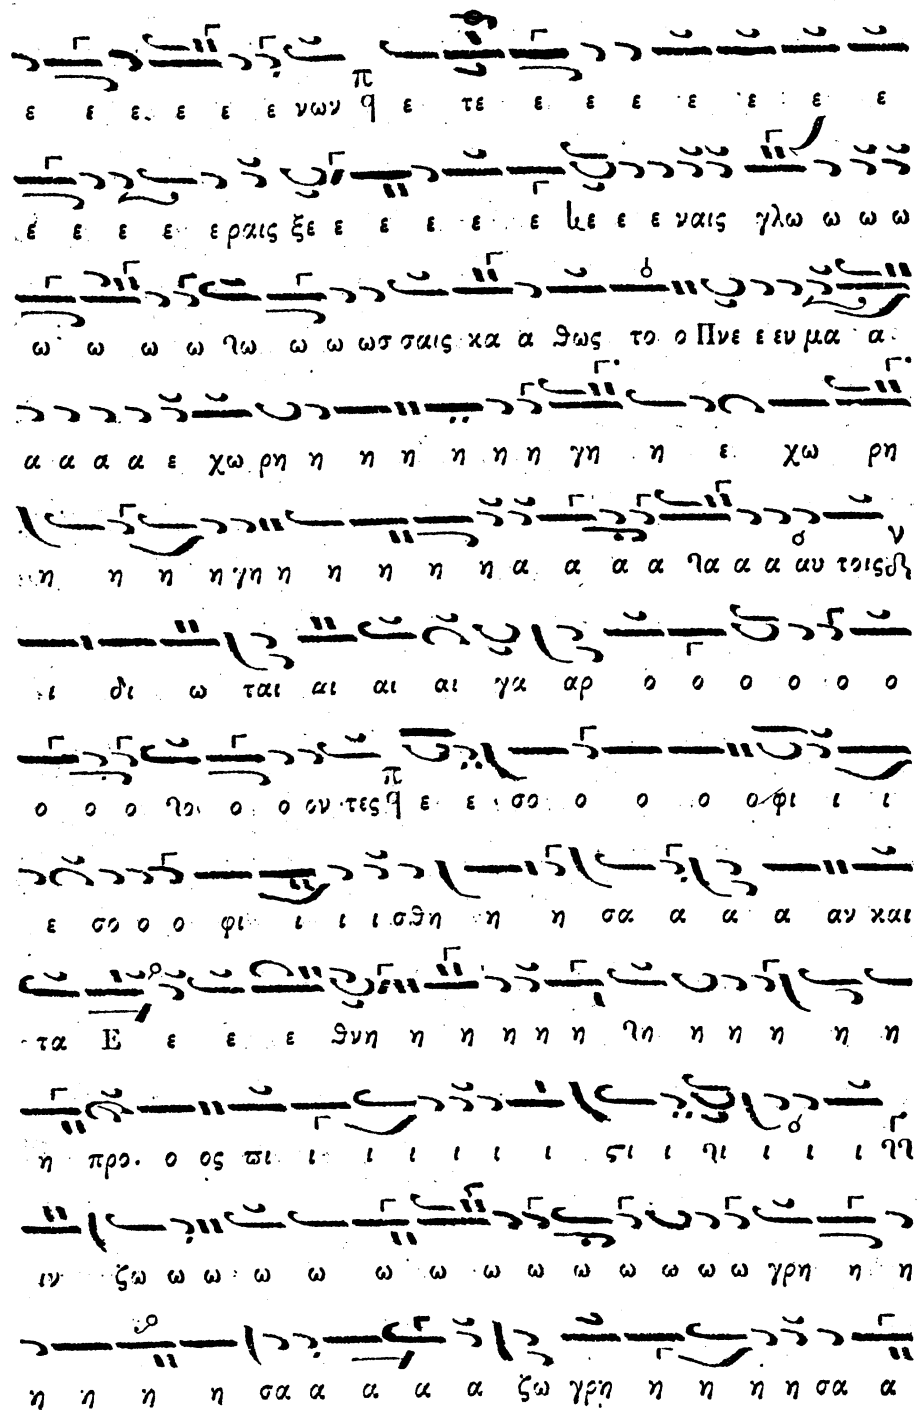 ε ε ε. ε ε ε νων π q ε τε ε ε ε ε ε ε ε
ε ε ε ε εραις ξε ε ε ε ε ε κε ε ε ναις γλω ω ω ω
ω ω ω ω ϡω ω ω ωσ σαις κα α θως το ο Πνε ε ευ μα α.
α α α α ε χω ρη η η η η η η γη η ε χω ρη
η η η η γη η η η η η α α α α ϡα α α αυ τοις
ι δι ω ται αι αι αι γα αρ ο ο ο ο ο ο
ο ο ο ϡο ο ο ον τες π q ε ε σο ο ο ο ο φι ι ι
ε σο ο ο φι ι ι ι σθη η η σα α α α αν και
τα Ε ε ε ε θνη η η η η η ϡη η η η η η
η προ. ο ος πι ι ι ι ι ι ι ςι ι ϡι ι ι ι
ιν ζω ω ω ω ω ω ω ω ω ω ω ω ω ω γρη η η
η η η η σα α α α α ζω γρη η η η η σα α